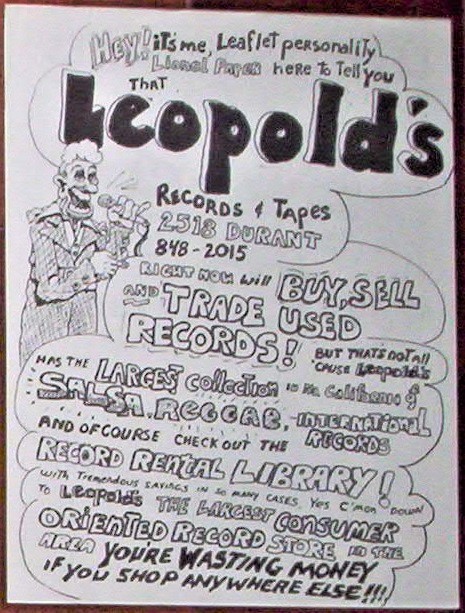 HEY! it's me, Leaflet personality
Lionel Paper here to Tell you
THAT
Leopold's
RECORDS & TAPES
2518 DURANT
848-2015
RIGHT NOW will BUY, SELL
AND TRADE USED
RECORDS!
BUT THAT'S NOT All
'CAUSE Leopold's
HAS THE LARGEST Collection in No. California of
SALSA, REGGAE, INTERNATIONAL
RECORDS
AND OF COURSE CHECK OUT THE
RECORD RENTAL LIBRARY!
WITH TREMENDOUS SAVINGS IN SO MANY CASES, Yes C'mon DOWN
TO Leopold's THE LARGEST CONSUMER
ORIENTED RECORD STORE IN THE
AREA YOU'RE WASTING MONEY
IF YOU SHOP ANYWHERE ELSE!!!